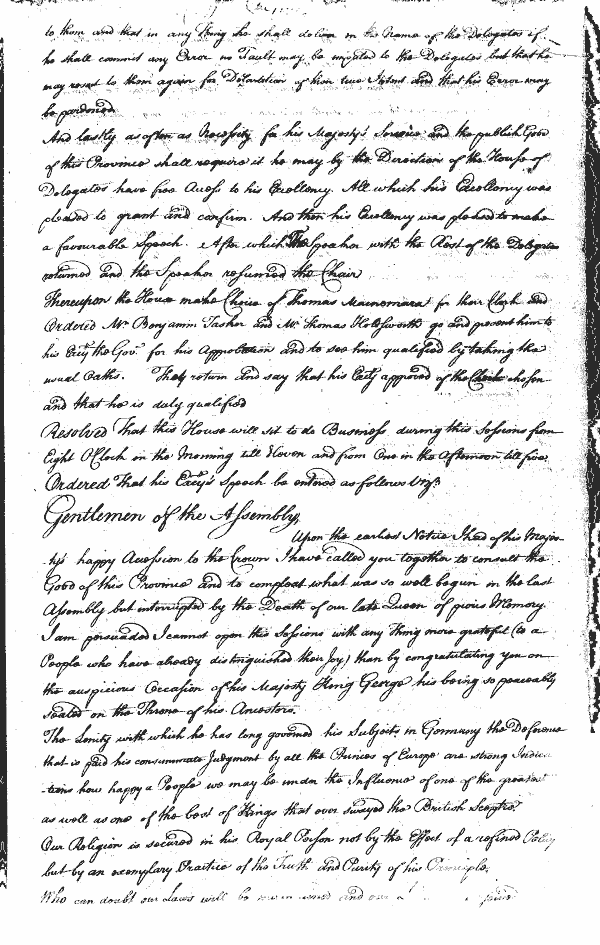 to them and that in any thing he shall deliver in the Name of the Delegates if
he shall commit any Error no Fault may be imputed to the Delegates but that he
may resort to them again for Declaration of their true Intent and that his Error may
be pardoned
And lastly as often as Necessity for his Majestys Service and the publick Good
of this Province shall require it he may by the Direction of the House of
Delegates have free Access to his Excellency. All which his Excellency was
pleased to grant and confirm. And then his Excellency was pleased to make
a favourable Speech. After which The Speaker with the Rest of the Delegates
returned and the Speaker resumed the Chair
Thereupon the House make Choice of Thomas Macnemara for their Clerk and
Ordered Mr Benjamin Tasker and Mr Thomas Holdsworth go and present him to
his Excy the Govr for his Approbation and to see him qualified by taking the
usual Oaths. They return and say that his Excy approved of the Clerk chosen
and that he is duly qualified
Resolved That this House will sit to do Business during this Sessions from
Eight OClock in the Morning till Eleven and from One in the Afternoon till five
Ordered That his Excys Speech be entered as follows Vizt
Gentlemen of the Assembly,
Upon the earliest Notice I had of his Majes-
ty's happy Accession to the Crown I have called you together to consult the
Good of this Province and to compleat what was so well begun in the last
Assembly but interrupted by the Death of our late Queen of pious Memory
I am persuaded I cannot open this Sessions with any thing more grateful (to a
People who have already distinguished their Joy) than by congratulating you on
the auspicious Occasion of his Majesty King George his being so peaceably
seated on the Throne of his Ancestors.
The Lenity with which he has long governed his Subjects in Germany the Deference
that is paid his consummate Judgment by all the Princes of Europe are strong Indica
-tions how happy a People we may be under the Influence of one of the greatest
as well as one of the best of Kings that ever swayed the British Sceptre.
Our Religion is secured in his Royal Person not by the Effect of a refined Policy
but by an exemplary Practice of the Truth and Purity of his Principle,
Who can doubt our Laws will be and our